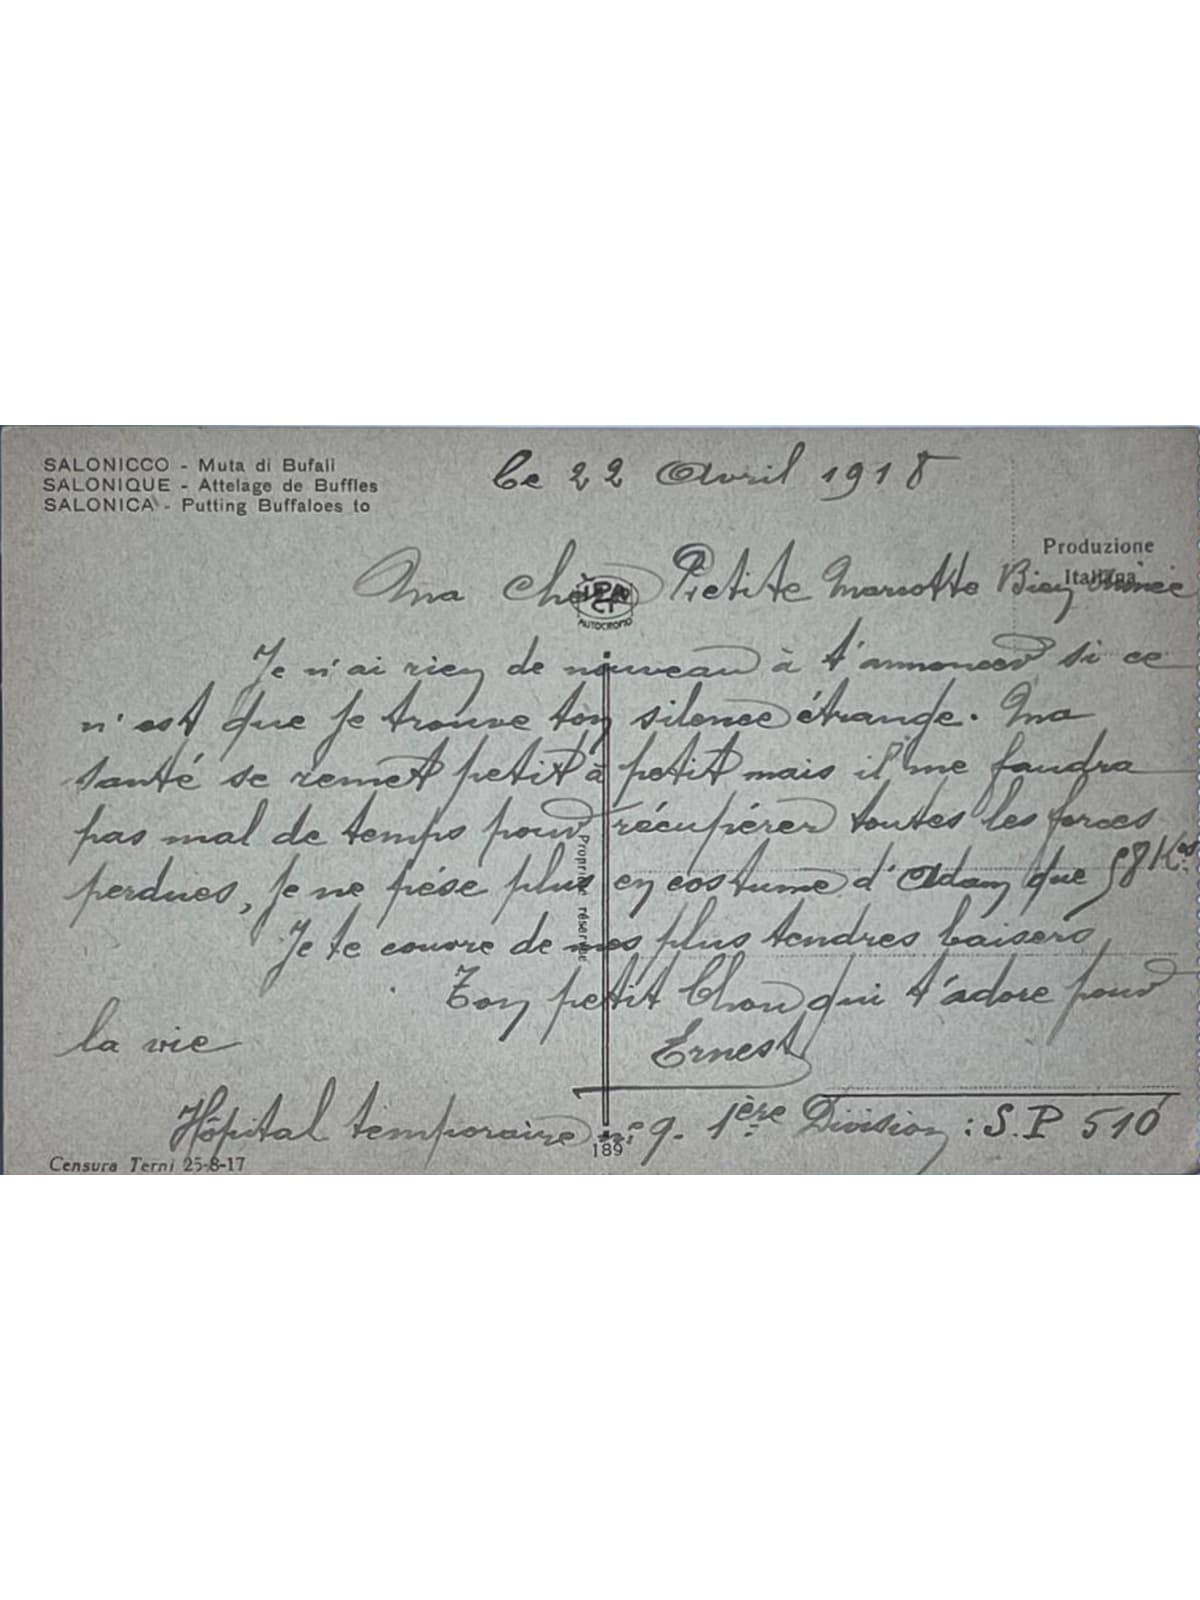 SALONICCO - Muta di Bufali
SALONIQUE - Attelage de Buffles
SALONICA - Putting Buffaloes to
Le 22 Avril 1918
Produzione
Italiana
Ma chère Petite Marcotte Bien Aimée
IPA
CT
AUTOCROMO
Je n'ai rien de nouveau à t'annoncer si ce
n'est que je trouve ton silence étrange. Ma
santé se remet petit à petit mais il me faudra
pas mal de temps pour récupérer toutes les forces
perdues, je ne pése plus en costume d'Adam que 58 Kos.
Je te couvre de mes plus tendres baisers
Ton petit Chou qui t'adore pour
la vie
Ernest
Propriété réservée
Hôpital temporaire no 9. 1ère Division : S.P 510
189
Censura Terni 25-8-17